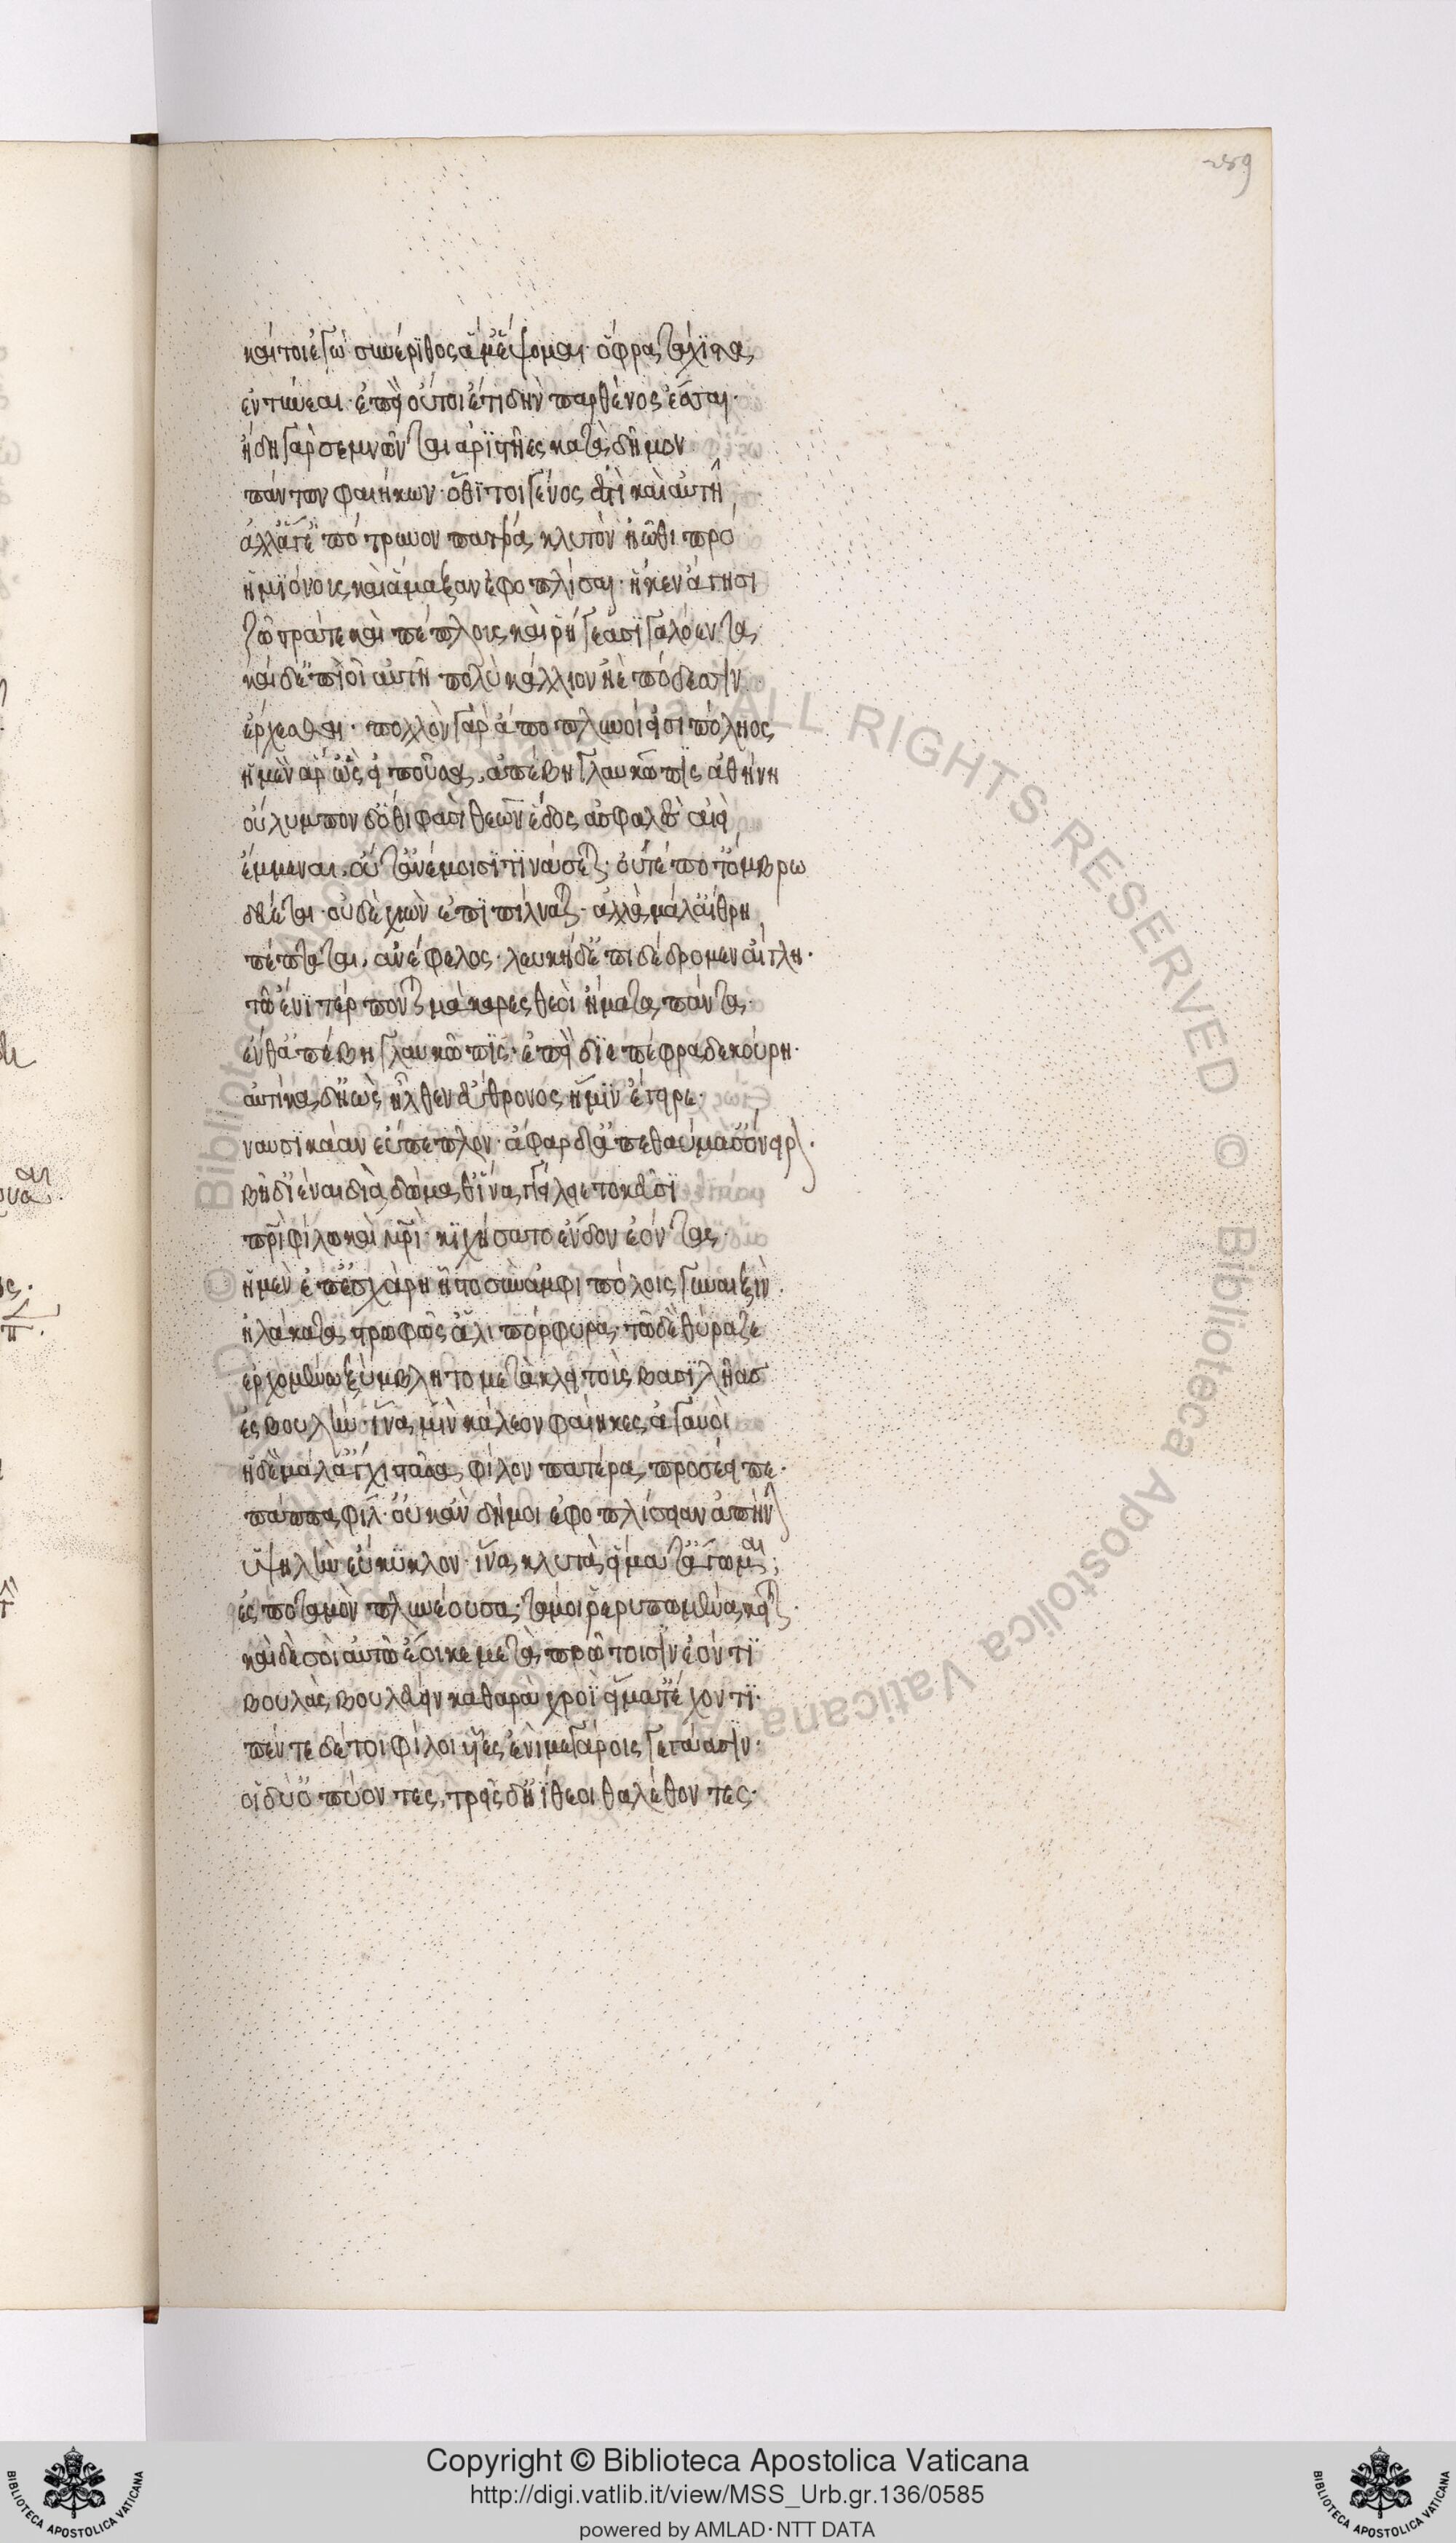 289
καί τοι ἐγὼ συνέριθος ἅμ' ἕψομαι· ὄφρα τάχιστα
ἐντύνεαι· ἐπεὶ οὔτοι ἔτι δὴν παρθένος ἔσσεαι·
ἤδη γάρ σε μνῶνται ἀριστῆες κατὰ δῆμον
πάντων φαιήκων· ὅθι τοι γένος ἐστὶ καὶ αὐτῆ
ἀλλ' ἄγ' ἐπότρυνον πατέρα κλυτὸν ἠῶθι πρό
ἡμιόνους καὶ ἅμαξαν ἐφοπλίσαι· ἥ κεν ἄγησι
ζῶστρά τε καὶ πέπλους καὶ ῥήγεα σιγαλόεντα
καὶ δέ σοι αὐτῆ πολὺ κάλλιον ἠὲ πόδεσσιν
ἔρχεσθαι· πολλὸν γὰρ ἄπο πλυνοί εἰσι πόληος
ἡ μὲν ἄρ' ὣς εἰποῦσα, ἀπέβη γλαυκῶπις ἀθήνη
οὔλυμπον δ' ὅθι φασὶ θεῶν ἕδος ἀσφαλὲς αἰεὶ
ἔμμεναι. οὔτ' ἀνέμοισι τινάσσεται· οὔτέ ποτ' ὄμβρω
δεύεται· οὐδὲ χιὼν ἐπιπίλναται· ἀλλὰ μάλ' αἴθρη
πέπταται, ἀνέφελος· λευκὴ δ' ἐπιδέδρομεν αἴγλη·
τῶ ἔνι τέρπονται μάκαρες θεοὶ ἤματα πάντα·
ἔνθ' ἀπέβη γλαυκῶπις· ἐπεὶ διεπέφραδε κούρη·
αὐτίκα δ' ἠὼς ἦλθεν ἐΰθρονος ἥ μιν ἔγειρε·
ναυσικάαν εὔπεπλον· ἄφαρ δ' ἀπεθαύμασ' ὄνειρον·
βῆ δ' ἰέναι διὰ δώμαθ' ἵν' ἀγγείλειε τοκεῦσι
πατρὶ φίλω καὶ μητρί· κιχήσατο ἔνδον ἐόντας·
ἡ μὲν ἐπ' ἐσχάρη ἧστο σὺν ἀμφιπόλοις γυναιξὶν·
ἠλάκατα στρωφῶσ' ἁλιπόρφυρα· τῶ δὲ θύραζε
ἐρχομένω ξύμβλητο μετὰ κλειτοὺς βασιλῆασ
ἐς βουλὴν· ἵνα μιν κάλεον φαίηκες ἀγαυοὶ
ἡ δὲ μάλ' ἄγχι στᾶσα φίλον πατέρα προσέειπε·
πάππα φίλ'· οὐκ ἂν δή μοι ἐφοπλίσειαν ἀπήνην
ὑψηλὴν εὔκυκλον· ἵνα κλυτὰ εἵματ' ἄγωμαι;
ἐς ποταμὸν πλυνέουσα· τά μοι ῥερυπωμένα κεῖται·
καὶ δὲ σοὶ αὐτῶ ἔοικε μετὰ πρώτοισιν ἐόντι
βουλὰς βουλεύειν καθαρὰ χροῒ εἵματ' ἔχοντι·
πέντε δέ τοι φίλοι υἷες ἐνὶ μεγάροις γεγάασιν·
οἱ δύ' ὀπύοντες, τρεῖς δ' ἠΐθεοι θαλέθοντες·
Copyright © Biblioteca Apostolica Vaticana
http://digi.vatlib.it/view/MSS_Urb.gr.136/0585
powered by AMLAD·NTT DATA